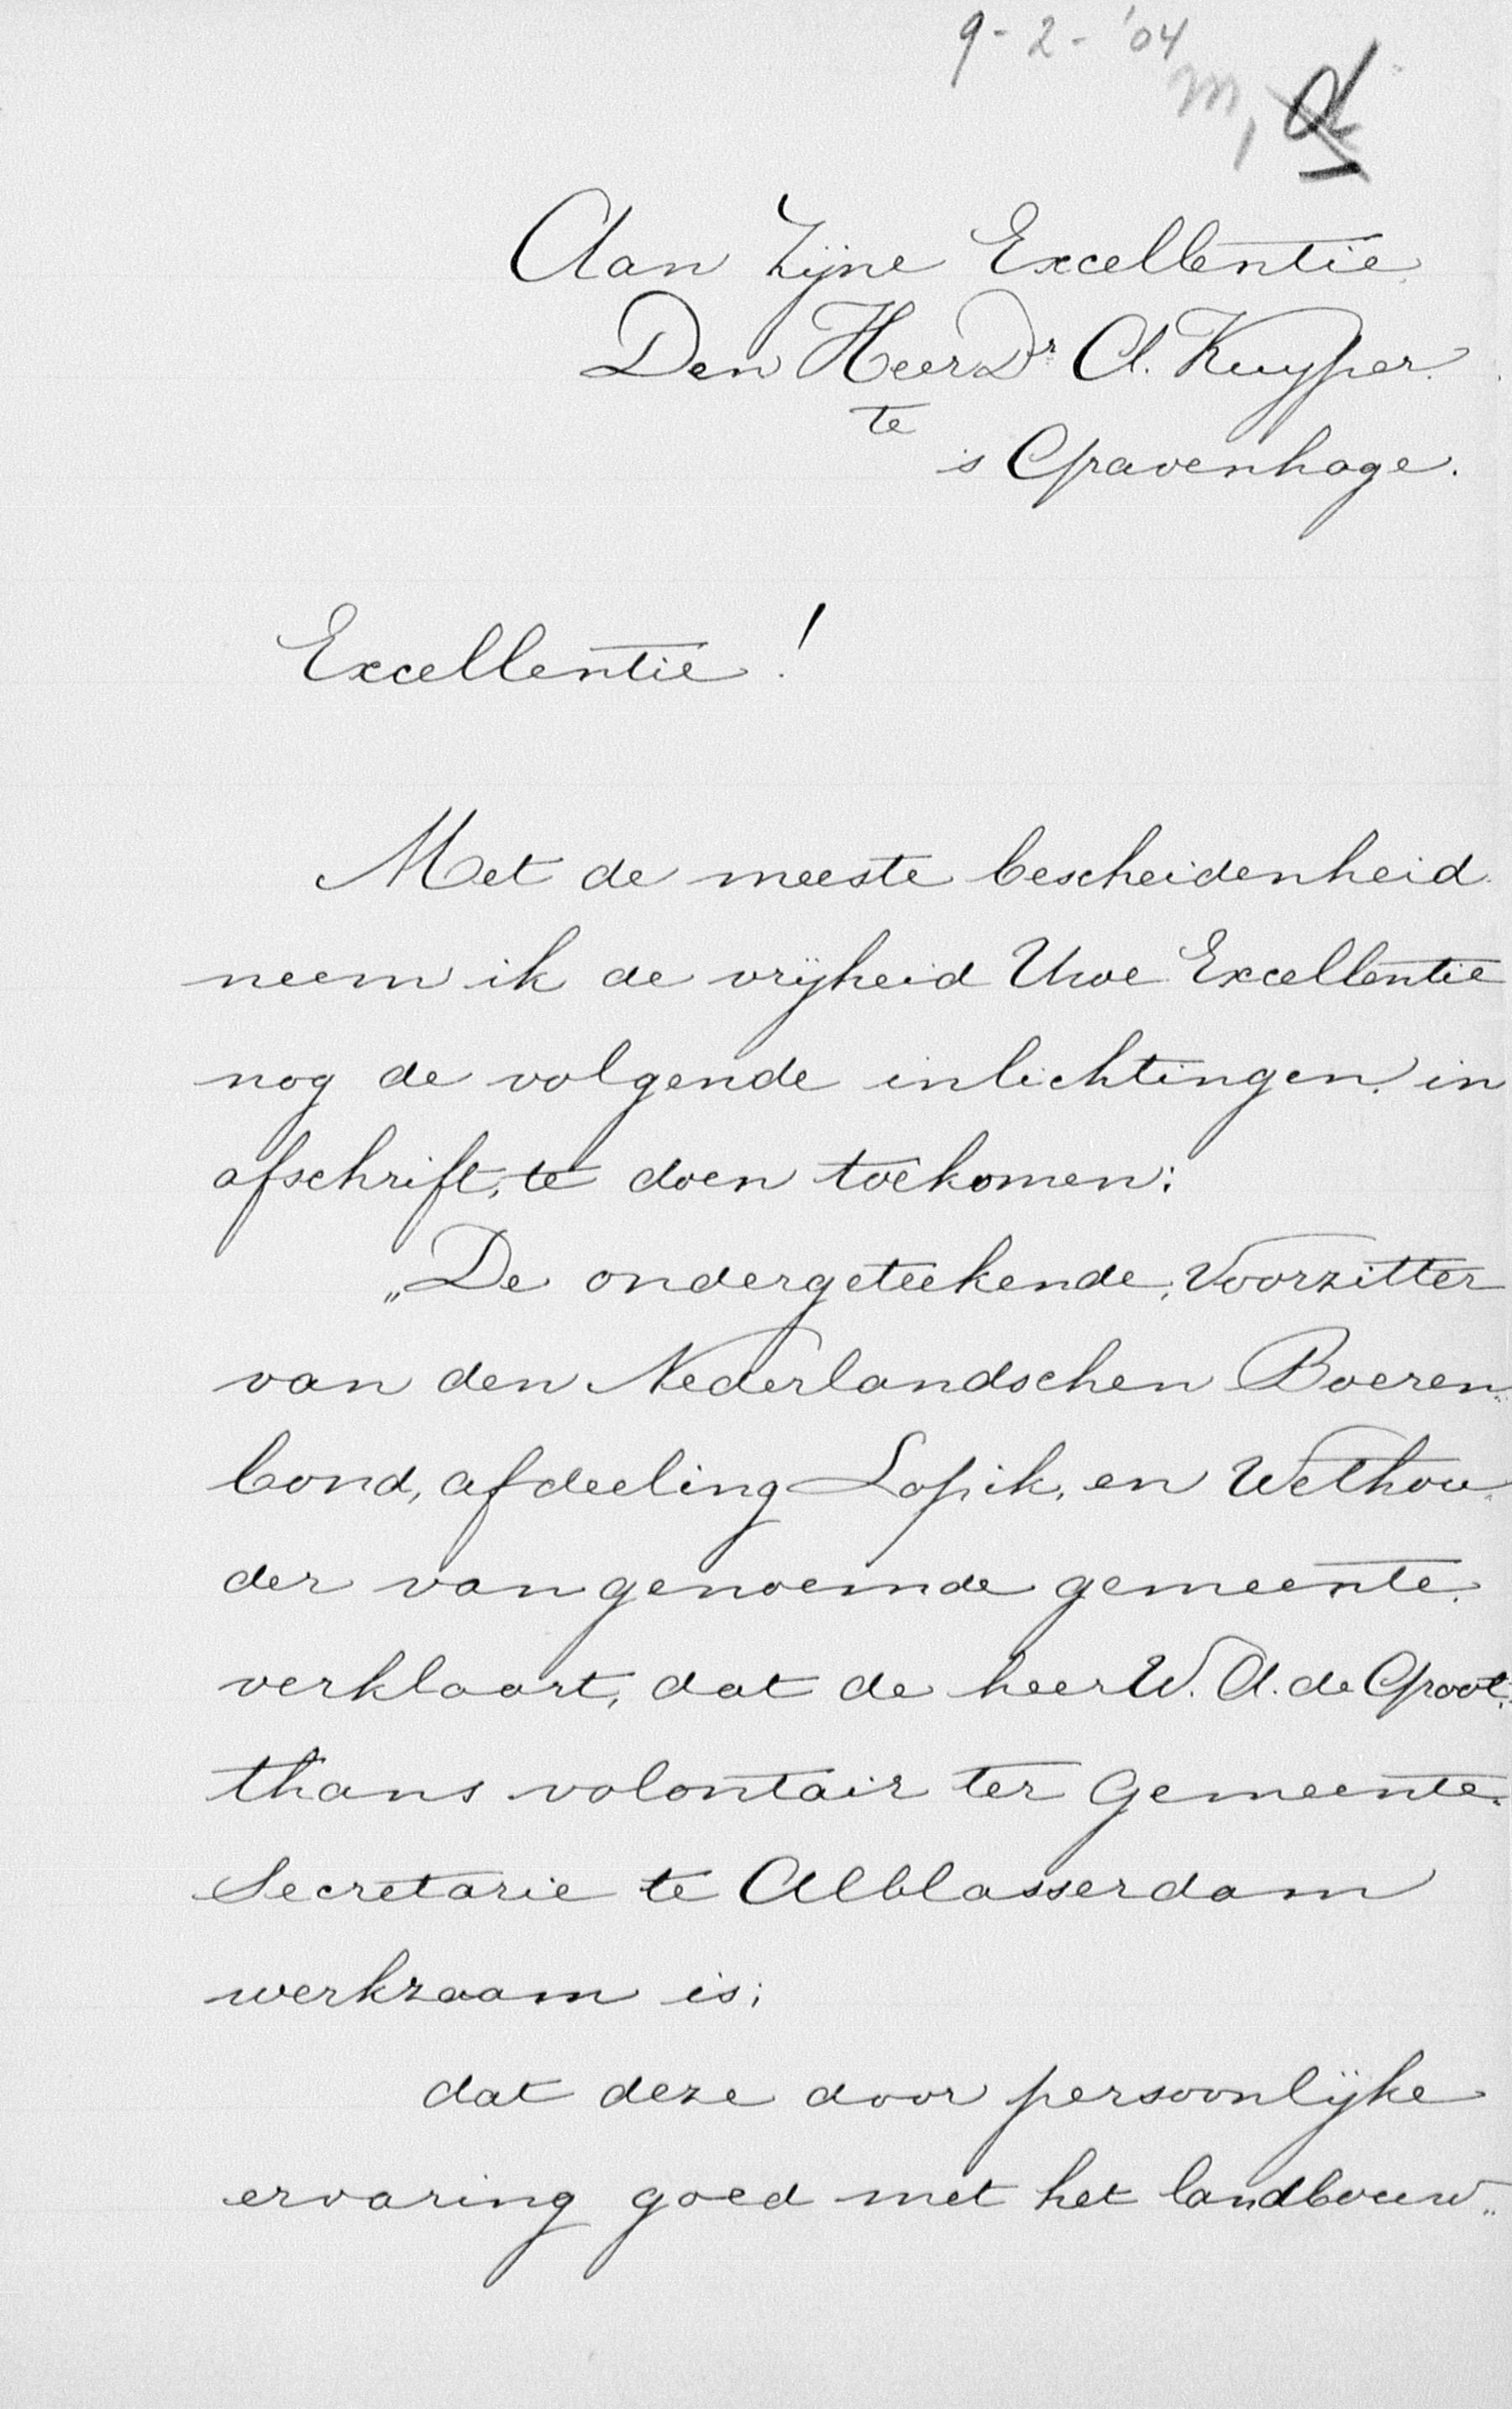 9-2-'04
m,
Aan Zijne Excellentie
Den Heer Dr A. Kuyper.
te
s Gravenhage.
Excellentie!
Met de meeste bescheidenheid
neem ik de vrijheid Uwe Excellentie
nog de volgende inlichtingen, in
afschrift, te doen toekomen:
„De ondergeteekende, Voorzitter
van den Nederlandschen Boeren„
bond, afdeeling Lopik, en Wethou„
der van genoemde gemeente,
verklaart, dat de heer W. A. de Groot,
thans volontair ter Gemeente„
Secretarie te Alblasserdam
werkzaam is;
dat deze door persoonlijke
ervaring goed met het landbouw„